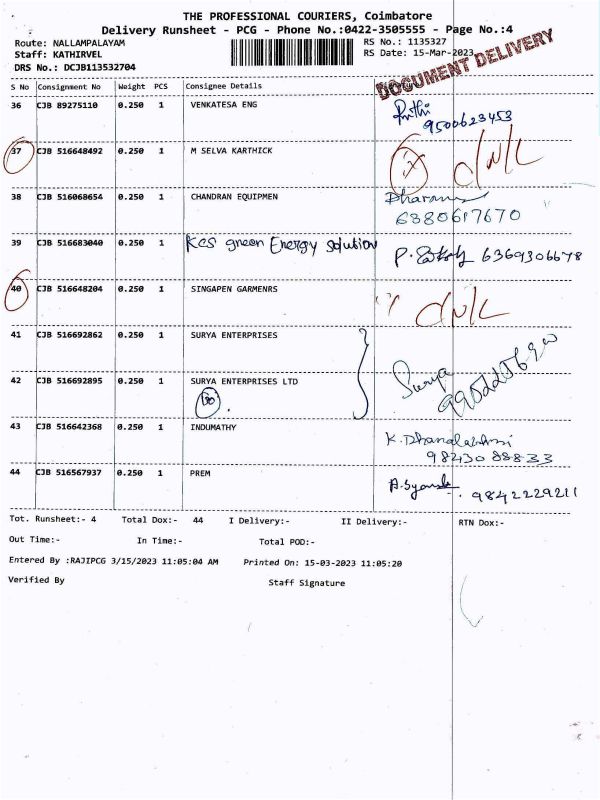 THE PROFESSIONAL COURIERS, Coimbatore
Delivery Runsheet - PCG - Phone No.:0422-3505555 - Page No.:4
Route: NALLAMPALAYAM
RS No.: 1135327
Staff: KATHIRVEL
RS Date: 15-Mar-2023
DRS No.: DCJB113532704
DOCUMENT DELIVERY
S No Consignment No Weight PCS Consignee Details
36 CJB 89275110 0.250 1 VENKATESA ENG
9500623453
37 CJB 516648492 0.250 1 M SELVA KARTHICK D/N/L
38 CJB 516068654 0.250 1 CHANDRAN EQUIPMEN
6380617670
39 CJB 516683040 0.250 1 Kcs green Energy solution P. 6369306678
40 CJB 516648204 0.250 1 SINGAPEN GARMENRS D/N/L
41 CJB 516692862 0.250 1 SURYA ENTERPRISES
42 CJB 516692895 0.250 1 SURYA ENTERPRISES LTD Surya
43 CJB 516642368 0.250 1 INDUMATHY K. Dhanalakshmi
9843088833
44 CJB 516567937 0.250 1 PREM 9842229211
Tot. Runsheet:- 4 Total Dox:- 44 I Delivery:- II Delivery:- RTN Dox:-
Out Time:- In Time:- Total POD:-
Entered By :RAJIPCG 3/15/2023 11:05:04 AM Printed On: 15-03-2023 11:05:20
Verified By Staff Signature